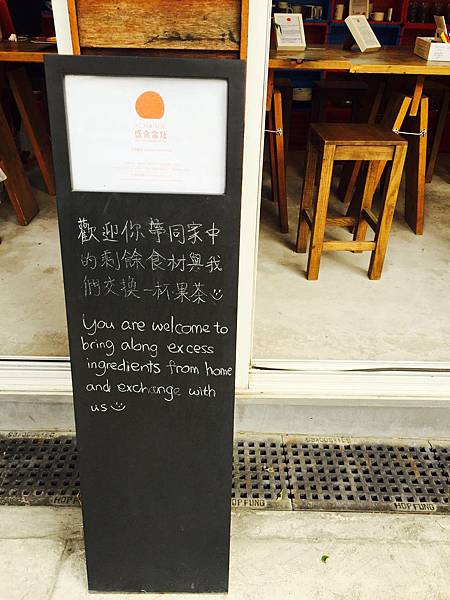 歡迎你帶同家中
的剩餘食材與我
們交換一杯果茶☺
You are welcome to
bring along excess
ingredients from home
and exchange with
us☺
HOP FUNG
HOP FUNG